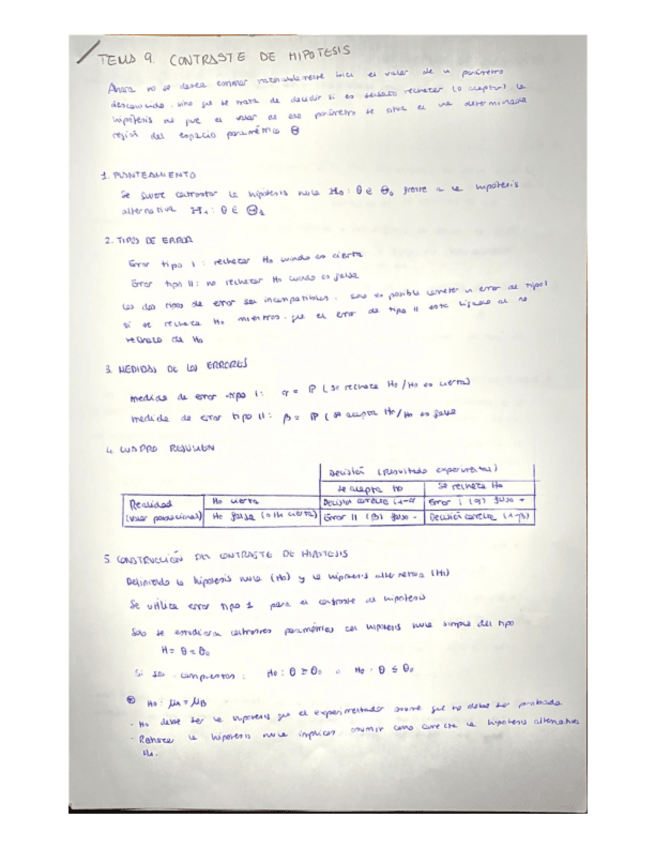 TEMA 9. CONTRASTE DE HIPOTESIS
Ahora no se desea estimar razonablemente bien el valor de un parámetro
desconocido, sino que se trata de decidir si es sensato rechazar (o aceptar) la
hipótesis de que el valor de ese parámetro se sitúa en una determinada
región del espacio paramétrico Θ
1. PLANTEAMIENTO
Se quiere contrastar la hipótesis nula H₀: θ ∈ Θ₀ frente a la hipótesis
alternativa H₁: θ ∈ Θ₁
2. TIPOS DE ERROR
Error tipo I: rechazar H₀ cuando es cierta
Error tipo II: no rechazar H₀ cuando es falsa
Los dos tipos de error son incompatibles, solo es posible cometer un error de tipo I
si se rechaza H₀ mientras que el error de tipo II está ligado al no
rechazo de H₀
3. MEDIDAS DE LOS ERRORES
medida de error tipo I: α = P (se rechaza H₀/H₀ es cierta)
medida de error tipo II: β = P (se acepta H₀/H₀ es falsa
4. CUADRO RESUMEN
Decisión (Resultado experimental)
Se acepta H₀ Se rechaza H₀
Realidad H₀ cierta Decisión correcta (1-α) Error I (α) falso +
(valor poblacional) H₀ falsa (o H₁ cierta) Error II (β) falso - Decisión correcta (1-β)
5. CONSTRUCCIÓN DEL CONTRASTE DE HIPOTESIS
Definiendo la hipótesis nula (H₀) y la hipótesis alternativa (H₁)
Se utiliza error tipo 1 para el contraste de hipótesis
Solo se estudiarán contrastes paramétricos con hipótesis nula simple del tipo
H = θ = θ₀
Si son compuestas: H₀: θ ≥ θ₀ o H₀: θ ≤ θ₀
H₀: μA = μB
- H₀ debe ser la hipótesis que el experimentador asume que no debe ser probada
- Rechazar la hipótesis nula implica asumir como correcta la hipótesis alternativa
H₁.